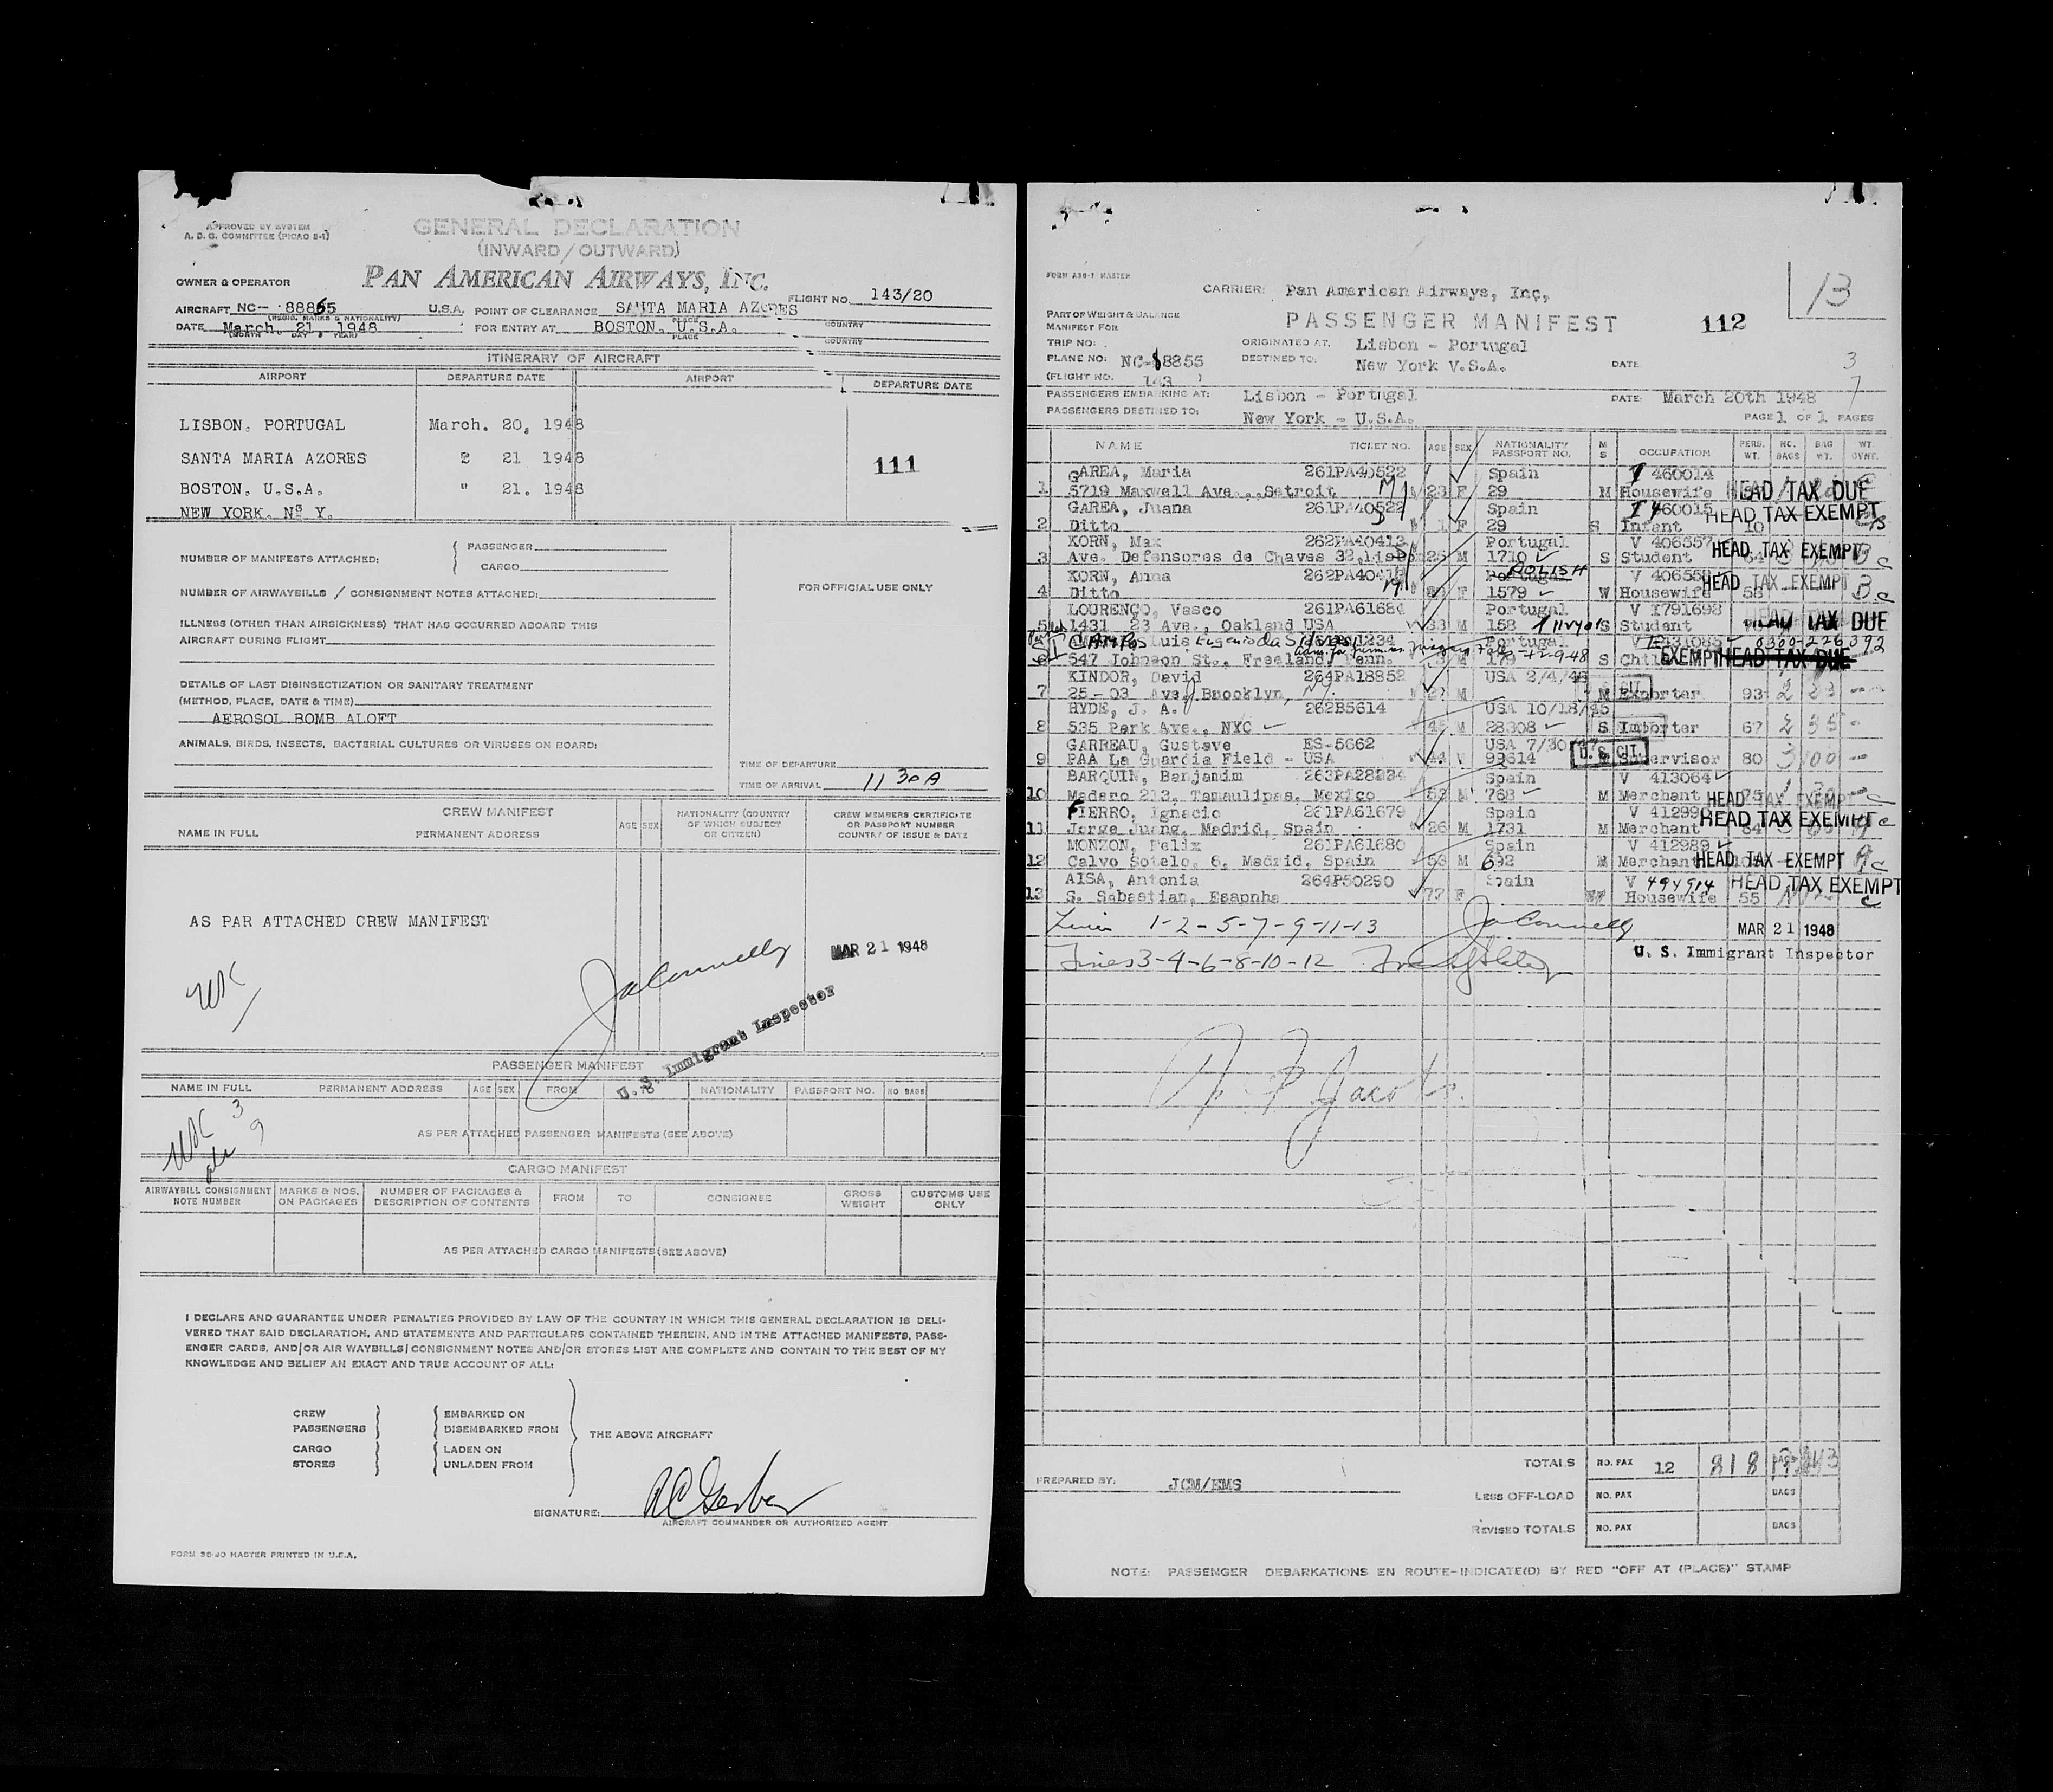 APPROVED BY SYSTEM
A. D. G. COMMITTEE (PICAO 2-1)
GENERAL DECLARATION
(INWARD / OUTWARD)
OWNER & OPERATOR PAN AMERICAN AIRWAYS, INC.
AIRCRAFT NC- 88855 U.S.A. POINT OF CLEARANCE SANTA MARIA AZORES FLIGHT NO. 143/20
(REGIS. MARKS & NATIONALITY) PLACE COUNTRY
DATE March. 21, 1948 FOR ENTRY AT BOSTON. U.S.A.
(MONTH DAY & YEAR) PLACE COUNTRY
ITINERARY OF AIRCRAFT
AIRPORT DEPARTURE DATE AIRPORT DEPARTURE DATE
LISBON. PORTUGAL March. 20, 1948
SANTA MARIA AZORES 21 1948 111
BOSTON. U.S.A. " 21. 1948
NEW YORK. N. Y.
NUMBER OF MANIFESTS ATTACHED: PASSENGER
CARGO
FOR OFFICIAL USE ONLY
NUMBER OF AIRWAYBILLS / CONSIGNMENT NOTES ATTACHED:
ILLNESS (OTHER THAN AIRSICKNESS) THAT HAS OCCURRED ABOARD THIS
AIRCRAFT DURING FLIGHT
DETAILS OF LAST DISINSECTIZATION OR SANITARY TREATMENT
(METHOD, PLACE, DATE & TIME)
AEROSOL BOMB ALOFT
ANIMALS, BIRDS, INSECTS, BACTERIAL CULTURES OR VIRUSES ON BOARD:
TIME OF DEPARTURE
TIME OF ARRIVAL 11 30 A
CREW MANIFEST
NAME IN FULL PERMANENT ADDRESS AGE SEX NATIONALITY (COUNTRY OF WHICH SUBJECT OR CITIZEN) CREW MEMBERS CERTIFICATE OR PASSPORT NUMBER COUNTRY OF ISSUE & DATE
AS PAR ATTACHED CREW MANIFEST
MAR 21 1948
JaConnelly
U. S. Immigrant Inspector
PASSENGER MANIFEST
NAME IN FULL PERMANENT ADDRESS AGE SEX FROM TO NATIONALITY PASSPORT NO. NO BAGS
3
9
AS PER ATTACHED PASSENGER MANIFESTS (SEE ABOVE)
CARGO MANIFEST
AIRWAYBILL CONSIGNMENT NOTE NUMBER MARKS & NOS. ON PACKAGES NUMBER OF PACKAGES & DESCRIPTION OF CONTENTS FROM TO CONSIGNEE GROSS WEIGHT CUSTOMS USE ONLY
AS PER ATTACHED CARGO MANIFESTS (SEE ABOVE)
I DECLARE AND GUARANTEE UNDER PENALTIES PROVIDED BY LAW OF THE COUNTRY IN WHICH THIS GENERAL DECLARATION IS DELI-
VERED THAT SAID DECLARATION, AND STATEMENTS AND PARTICULARS CONTAINED THEREIN, AND IN THE ATTACHED MANIFESTS, PASS-
ENGER CARDS, AND/OR AIR WAYBILLS/CONSIGNMENT NOTES AND/OR STORES LIST ARE COMPLETE AND CONTAIN TO THE BEST OF MY
KNOWLEDGE AND BELIEF AN EXACT AND TRUE ACCOUNT OF ALL:
CREW EMBARKED ON
PASSENGERS DISEMBARKED FROM
THE ABOVE AIRCRAFT
CARGO LADEN ON
STORES UNLADEN FROM
SIGNATURE:
AIRCRAFT COMMANDER OR AUTHORIZED AGENT
FORM 36-30 MASTER PRINTED IN U.S.A.
FORM A36-1 MASTER
13
CARRIER: Pan American Airways, Inc,
PART OF WEIGHT & BALANCE
MANIFEST FOR
PASSENGER MANIFEST 112
TRIP NO: ORIGINATED AT. Lisbon - Portugal
PLANE NO: NC-88855 DESTINED TO: New York V.S.A. DATE 3
(FLIGHT NO. 143 ) 7
PASSENGERS EMBARKING AT: Lisbon - Portugal DATE: March 20th 1948
PASSENGERS DESTINED TO: New York - U.S.A. PAGE 1 OF 1 PAGES
NAME TICKET NO. AGE SEX NATIONALITY PASSPORT NO. M S OCCUPATION PERS. WT. NO. BAGS BAG WT. WT. OVNT.
GAREA, Maria 261PA40522 Spain I 460014
1 5719 Maxwell Ave., Setroit M 23 F 29 M Housewife HEAD TAX DUE
GAREA, Juana 261PA40522 Spain I 460015 HEAD TAX EXEMPT
2 Ditto 1 F 29 S Infant 10
KORN, Max 262PA40413 Portugal V 406557 HEAD TAX EXEMPT
3 Ave. Defensores de Chaves 32, Lisb 25 M 1710 S Student 64
KORN, Anna Portugal POLISH HEAD TAX EXEMPT
4 Ditto F 1579 W Housewife 58
LOURENÇO, Vasco 261PA61684 Portugal V I791698
5 1431 23 Ave., Oakland USA 33 M 158 S Student HEAD TAX DUE
CAMPOS Luis Eugenio da 1234 Portugal 0300-226392
6 547 Johnson St., Freeland, Penn. 179 12-9-48 S EXEMPT HEAD TAX DUE
KINDOR, David 264PA18852 USA 2/4/
7 25-03 Ave, Brooklyn, M M Exporter 93 2
HYDE, J. A. 262B5614 USA 10/18/45
8 535 Park Ave., NYC M 28308 S Importer 67 2 35 -
GARREAU, Gustave ES-5662 USA 7/30/47
9 PAA La Guardia Field - USA 44 99614 U.S. CIT. Supervisor 80 3
BARQUIN, Benjamim 263PA28234 Spain V 413064
10 Madero 213, Tamaulipas, Mexico 52 M 768 M Merchant 75 HEAD TAX EXEMPT
FIERRO, Ignacio 261PA61679 Spain HEAD TAX EXEMPT
11 Jorge Juang, Madrid, Spain 26 M 1731 M Merchant 84
MONZON, Felix 261PA61680 Spain V 412989
12 Calvo Sotelo, 6, Madrid, Spain 50 M 692 M Merchant HEAD TAX EXEMPT
AISA, Antonia 264P50290 Spain V 494914 HEAD TAX EXEMPT
13 S. Sebastian, Esapnha 77 F Housewife 55
Lines 1-2-5-7-9-11-13 JaConnelly MAR 21 1948
Lines 3-4-6-8-10-12 U. S. Immigrant Inspector
Jacobs
TOTALS NO. PAX 12 818 BAGS
PREPARED BY. JCM/EMS
LESS OFF-LOAD NO. PAX BAGS
REVISED TOTALS NO. PAX BAGS
NOTE: PASSENGER DEBARKATIONS EN ROUTE-INDICATE(D) BY RED "OFF AT (PLACE)" STAMP